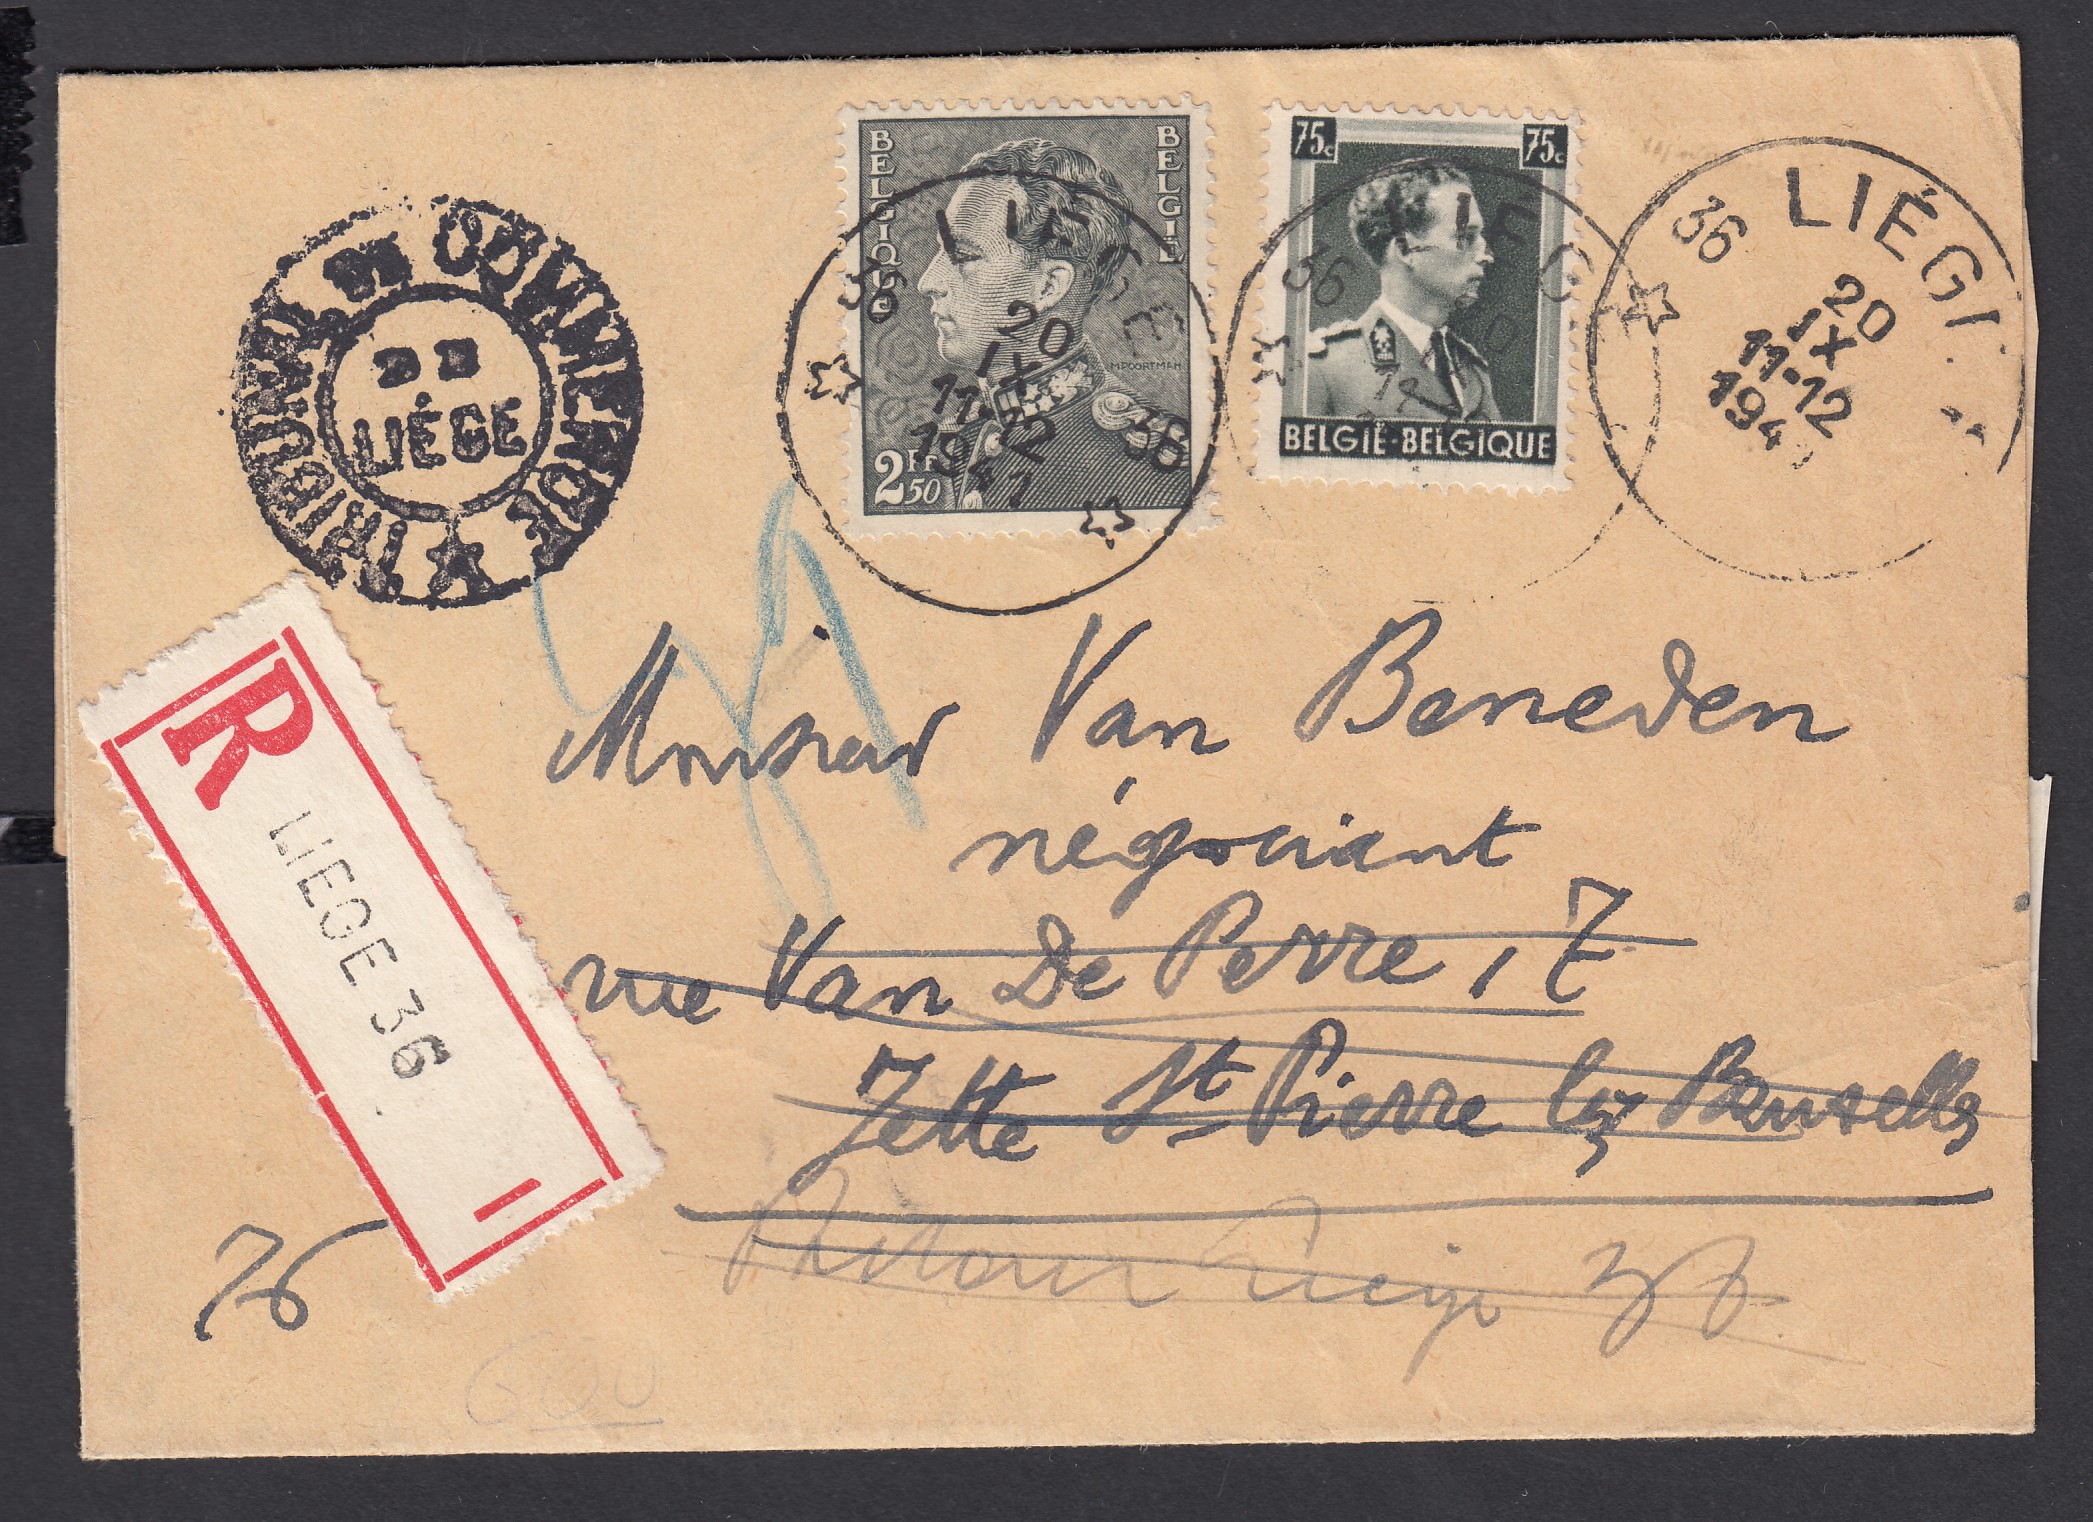 TRIBUNAL DE COMMERCE
LIÉGE
BELGIQUE
BELGIË
M. POORTMAN
2 Fr 50
36 LIEGE 36
20
IX
11-12
1941
75c 75c
BELGIË-BELGIQUE
36 LIEG
36 LIÉG
20
IX
11-12
194
R
LIEGE 36
Monsieur Van Beneden
négociant
rue Van De Perre, 7
Jette St Pierre lez Bruxelles
Retour Liège 36
600